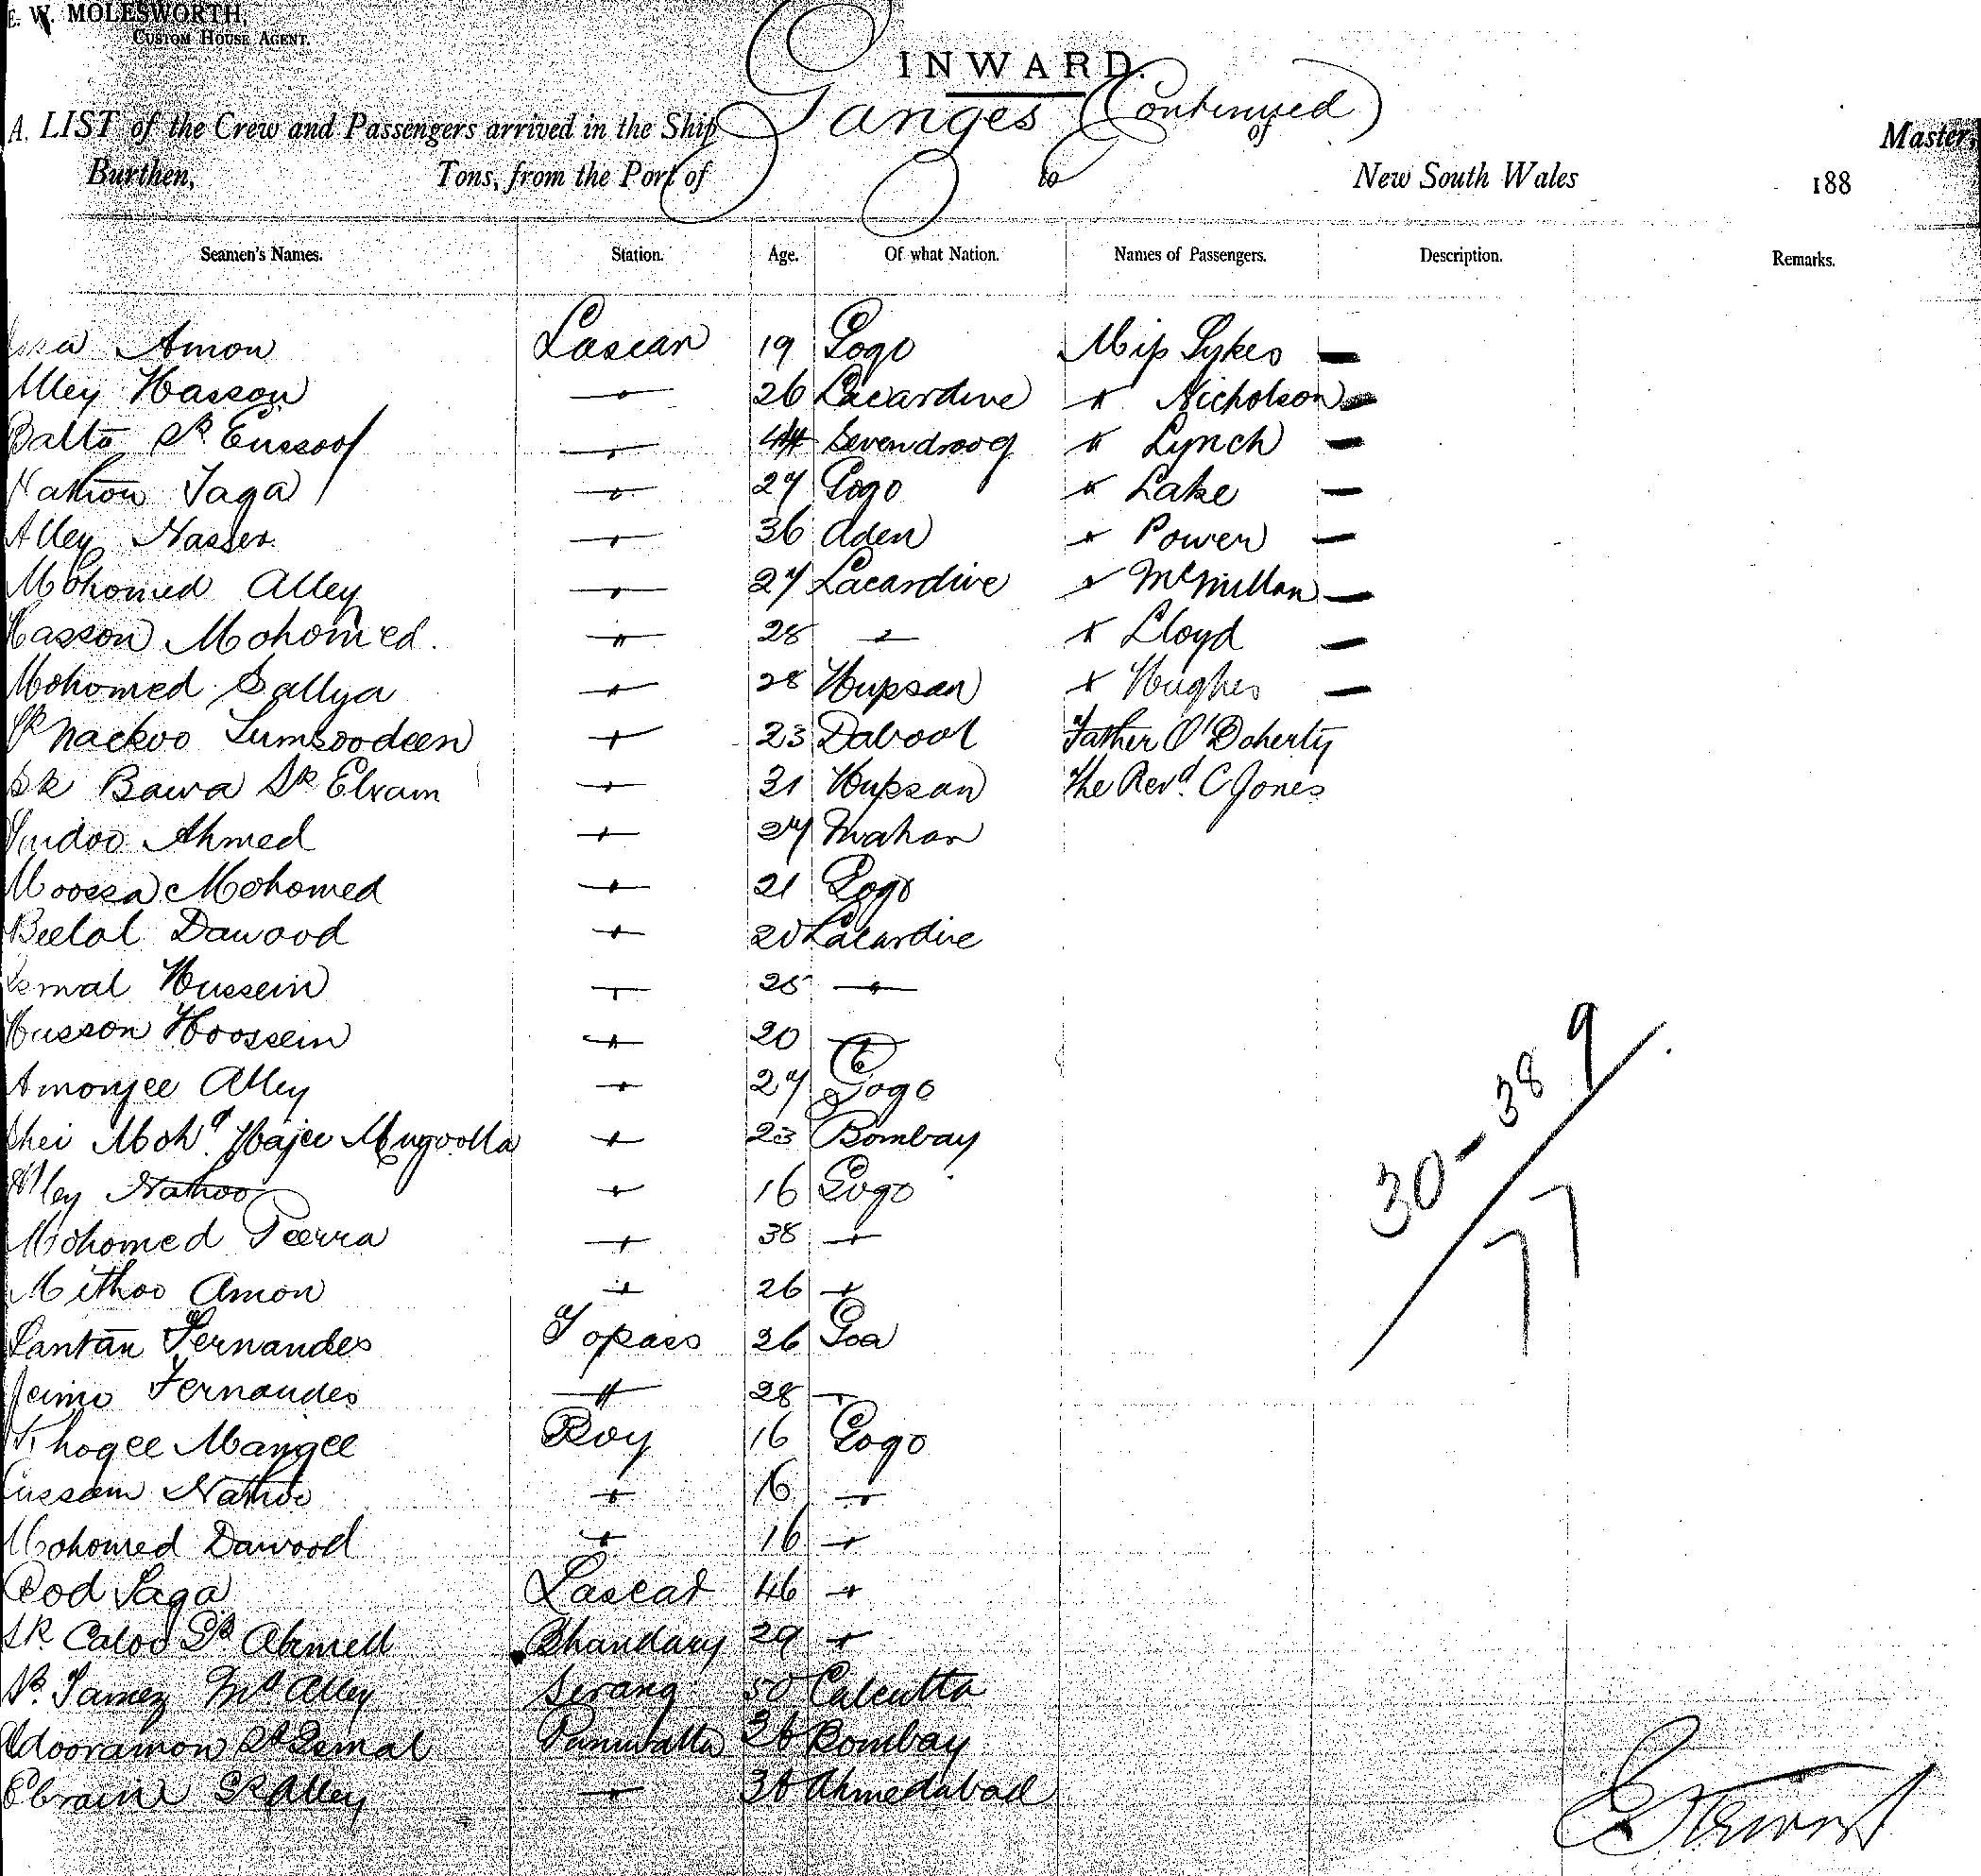 E. W. MOLESWORTH,
CUSTOM HOUSE AGENT.
INWARD.
A LIST of the Crew and Passengers arrived in the Ship Ganges (Continued) of Master,
Burthen, Tons, from the Port of to New South Wales 188
Seamen's Names. Station. Age. Of what Nation. Names of Passengers. Description. Remarks.
Amon Lascar 19 Gogo Miss Sykes —
Alley Hasson " 26 Lacardive " Nicholson —
Balto Sk Eussoof " 44 Severndroog " Lynch —
Nathoo Jaga " 27 Gogo " Lake —
Alley Nasser " 36 Aden " Power —
Mohomed Alley " 27 Lacardive " McMillan —
Hasson Mohomed. " 28 " " Lloyd —
Mohomed Sallya " 28 Hupsan " Hughes —
Sk Nackoo Sumsoodeen " 23 Dabool Father O'Doherty
Sk Bawa Sk Ebram " 31 Hupsan The Revd. C Jones
Ahmed " 27 Mahon
Moossa Mohomed " 21 Gogo
Beelal Dawood " 20 Lacardive
Esmal Hussein " 25 "
Husson Hoossein " 20 "
Amonjee Alley " 27 Gogo
Mohd. Hajee Mugvolla " 23 Bombay
Alley Nathoo " 16 Gogo
Mohomed Peerra " 38 "
Mithoo Amon " 26 "
Santan Fernandes Topass 26 Goa
Jaimo Fernandes " 28 "
Mangee Boy 16 Gogo
Cussam Nathoo " 16 "
Mohomed Dawood " 16 "
Dod Jaga Lascar 46 "
Sk Caloo Sk Ahmed Bhandary 29 "
Sk. Md Alley Serang 50 Calcutta
Adooramon Sk Esmal Puniwalla 36 Bombay
Ebraim Sk Alley " 30 Ahmedabad
30-38 9
77
E Stewart